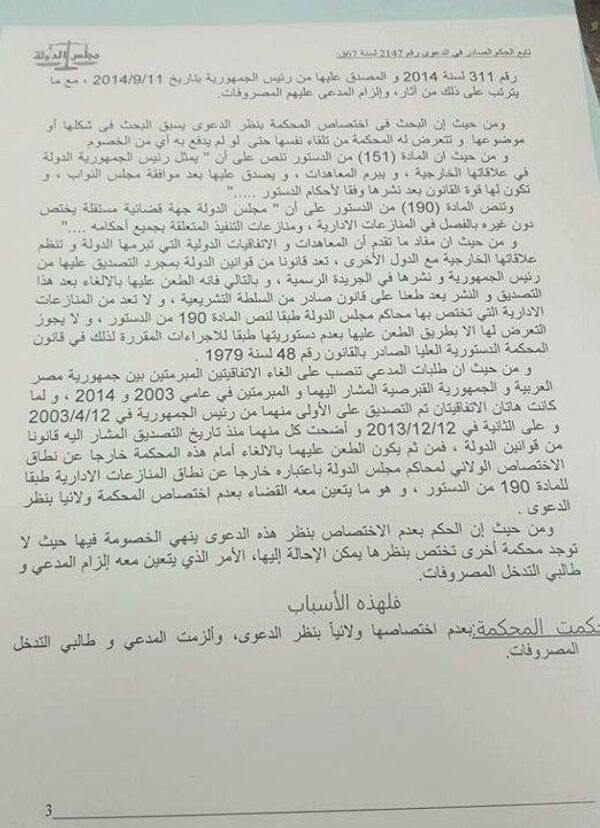 تابع الحكم الصادر في الدعوى رقم 2147 لسنة 67ق
مجلس الدولة
رقم 311 لسنة 2014 و المصدق عليها من رئيس الجمهورية بتاريخ 2014/9/11 ، مع ما
يترتب على ذلك من آثار، وإلزام المدعى عليهم المصروفات.
ومن حيث إن البحث في اختصاص المحكمة بنظر الدعوى يسبق البحث في شكلها أو
موضوعها و تتعرض له المحكمة من تلقاء نفسها حتى لو لم يدفع به أي من الخصوم
و من حيث ان المادة (151) من الدستور تنص على أن " يمثل رئيس الجمهورية الدولة
في علاقاتها الخارجية ، و يبرم المعاهدات ، و يصدق عليها بعد موافقة مجلس النواب ، و
تكون لها قوة القانون بعد نشرها وفقا لأحكام الدستور ....."
وتنص المادة (190) من الدستور على أن " مجلس الدولة جهة قضائية مستقلة يختص
دون غيره بالفصل في المنازعات الادارية ، ومنازعات التنفيذ المتعلقة بجميع أحكامه ...."
و من حيث ان مفاد ما تقدم أن المعاهدات و الاتفاقيات الدولية التي تبرمها الدولة و تنظم
علاقاتها الخارجية مع الدول الأخرى ، تعد قانونا من قوانين الدولة بمجرد التصديق عليها من
رئيس الجمهورية و نشرها في الجريدة الرسمية ، و بالتالي فانه الطعن عليها بالالغاء بعد هذا
التصديق و النشر يعد طعنا على قانون صادر من السلطة التشريعية ، و لا تعد من المنازعات
الادارية التي تختص بها محاكم مجلس الدولة طبقا لنص المادة 190 من الدستور ، و لا يجوز
التعرض لها الا بطريق الطعن عليها بعدم دستوريتها طبقا للاجراءات المقررة لذلك في قانون
المحكمة الدستورية العليا الصادر بالقانون رقم 48 لسنة 1979 .
و من حيث ان طلبات المدعي تنصب على الغاء الاتفاقيتين المبرمتين بين جمهورية مصر
العربية و الجمهورية القبرصية المشار اليهما و المبرمتين في عامي 2003 و 2014 ، و لما
كانت هاتان الاتفاقيتان تم التصديق على الأولى منهما من رئيس الجمهورية في 2003/4/12
و على الثانية في 2013/12/12 و أضحت كل منهما منذ تاريخ التصديق المشار اليه قانونا
من قوانين الدولة ، فمن ثم يكون الطعن عليهما بالالغاء أمام هذه المحكمة خارجا عن نطاق
الاختصاص الولائي لمحاكم مجلس الدولة باعتباره خارجا عن نطاق المنازعات الادارية طبقا
للمادة 190 من الدستور ، و هو ما يتعين معه القضاء بعدم اختصاص المحكمة ولائيا بنظر
الدعوى .
ومن حيث إن الحكم بعدم الاختصاص بنظر هذه الدعوى ينهي الخصومة فيها حيث لا
توجد محكمة أخرى تختص بنظرها يمكن الإحالة إليها، الأمر الذي يتعين معه إلزام المدعي و
طالبي التدخل المصروفات.
فلهذه الأسباب
حكمت المحكمة: بعدم اختصاصها ولائياً بنظر الدعوى، وألزمت المدعي و طالبي التدخل
المصروفات.
3